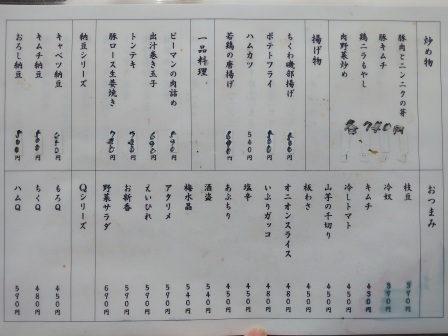 炒め物
豚肉とニンニクの芽
豚キムチ
鶏ニラもやし
肉野菜炒め
各740円
揚げ物
ちくわ磯部揚げ
ポテトフライ
ハムカツ 540円
若鶏の唐揚げ 690円
一品料理
ピーマンの肉詰め
出汁巻き玉子 640円
トンテキ
豚ロース生姜焼き
納豆シリーズ
キャベツ納豆
キムチ納豆 500円
おろし納豆 500円
おつまみ
枝豆 390円
冷奴 390円
キムチ 430円
冷しトマト 450円
山芋の千切り 450円
板わさ 450円
オニオンスライス 480円
いぶりガッコ 480円
塩辛 450円
あぶちり 450円
酒盗 540円
梅水晶 540円
アタリメ 590円
えいひれ 590円
お新香 590円
野菜サラダ 690円
Qシリーズ
もろQ 450円
ちくQ 480円
ハムQ 590円